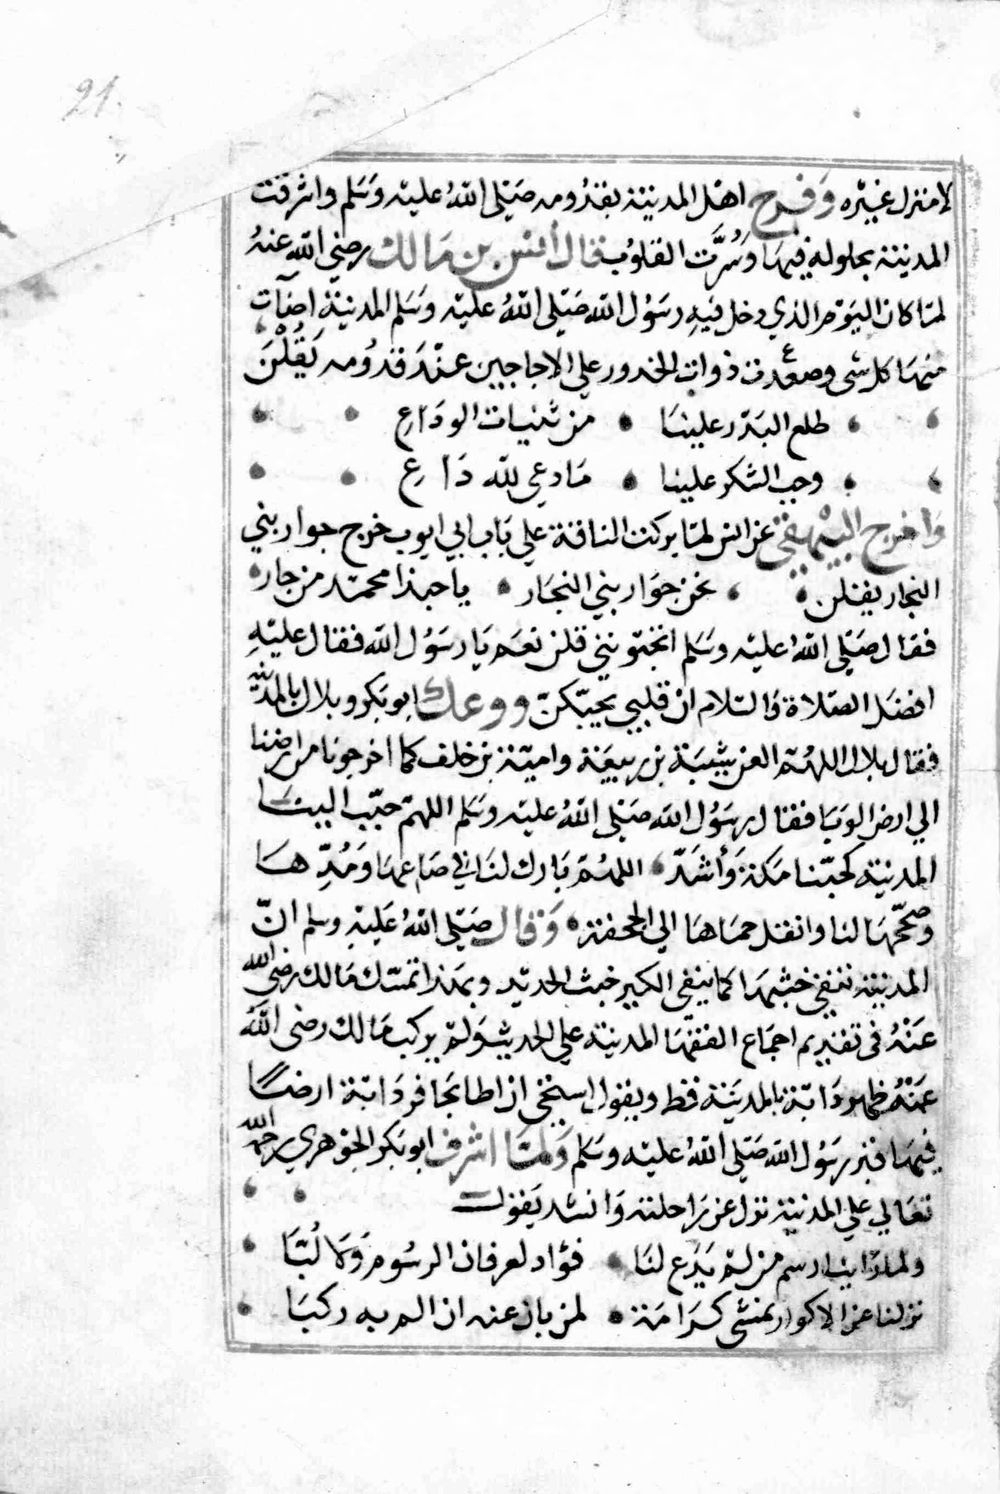 21
لا منزل غيره وَفرح اهل المدينة بقدُومه صَلى اللهُ عليه وَسَلم واشرقت
المدينة بحلوله فيها وَسُرَّت القلوُب قال أنس بن مَالك رضي الله عنهُ
لما كان اليَوم الذي دخل فيَه رسَوُل الله صَلى اللهُ عليه وسَلم المدينة اضآت
منها كل شى وصعدت ذوات الخدور على الاجاجين عند قدُومه يَقُلْنَ
طلع البَدر علينَا • من ثنيات الودَاع
وجب الشكر علينا • مَا دعى لله دَاع
وَاخرج البيْهقي عن انس لما بركت الناقة علي بَاب ابي ايوب خرج جوار بني
النجار يقلن • نحن جوَار بني النجَار • يا حبذا محمد من جار
فقال صَلى اللهُ عليه وسَلم اتحبونني قلن نعَم يَا رسَوُل الله فقال عليْهِ
افضَل الصّلاة وَالسّلام انّ قلبي يحبّكنّ ووعك ابو بَكر وبلال بالمدينة
فقال بلال اللهُمّ العن شيبَة بن ربيعَة واميّة بن خلف كما اخرجونا من ارضنا
الي ارض الوَبَا فقال رسَوُل الله صَلى اللهُ عليه وسَلم اللهمّ حبّب الينَا
المدينة كحبّنا مَكة وَأشدّ • اللهُمّ بَارك لنَا في صَاعهَا وَمُدِّهَا
وصحّحهَا لنا وانقل حمَاهَا الي الجحفة • وَقال صَلى اللهُ عَليْهِ وسلم انّ
المدينة تنفي خبثهَا كما ينفي الكير خبث الحديد وبهَذا تمسّك مَالك رضى الله
عَنْهُ فى تقديم اجمَاع الفقهَا المدينة على الحديث وَلم يركب مَالك رضى اللهُ
عَنْهُ ظهر دَابّة بالمدينَة قط ويقول استحى ان اطا بحافر دَابّة ارضًا
فيهَا قبر رسَوُل الله صَلى اللهُ عليه وسَلم وَلمّا اشرف ابو بَكر الجوهري رحمه الله
تعَالي علي المدينة نزل عن رَاحلته وَانشد يَقول
ولما رَاينا رسم من لم يَدَع لنَا • فؤاد لعرفان الرسُوم وَلَا لُبّا
نزلنا عن الاكوار نمشي كرَامَة • لمن بان عنه ان الم به ركبَا